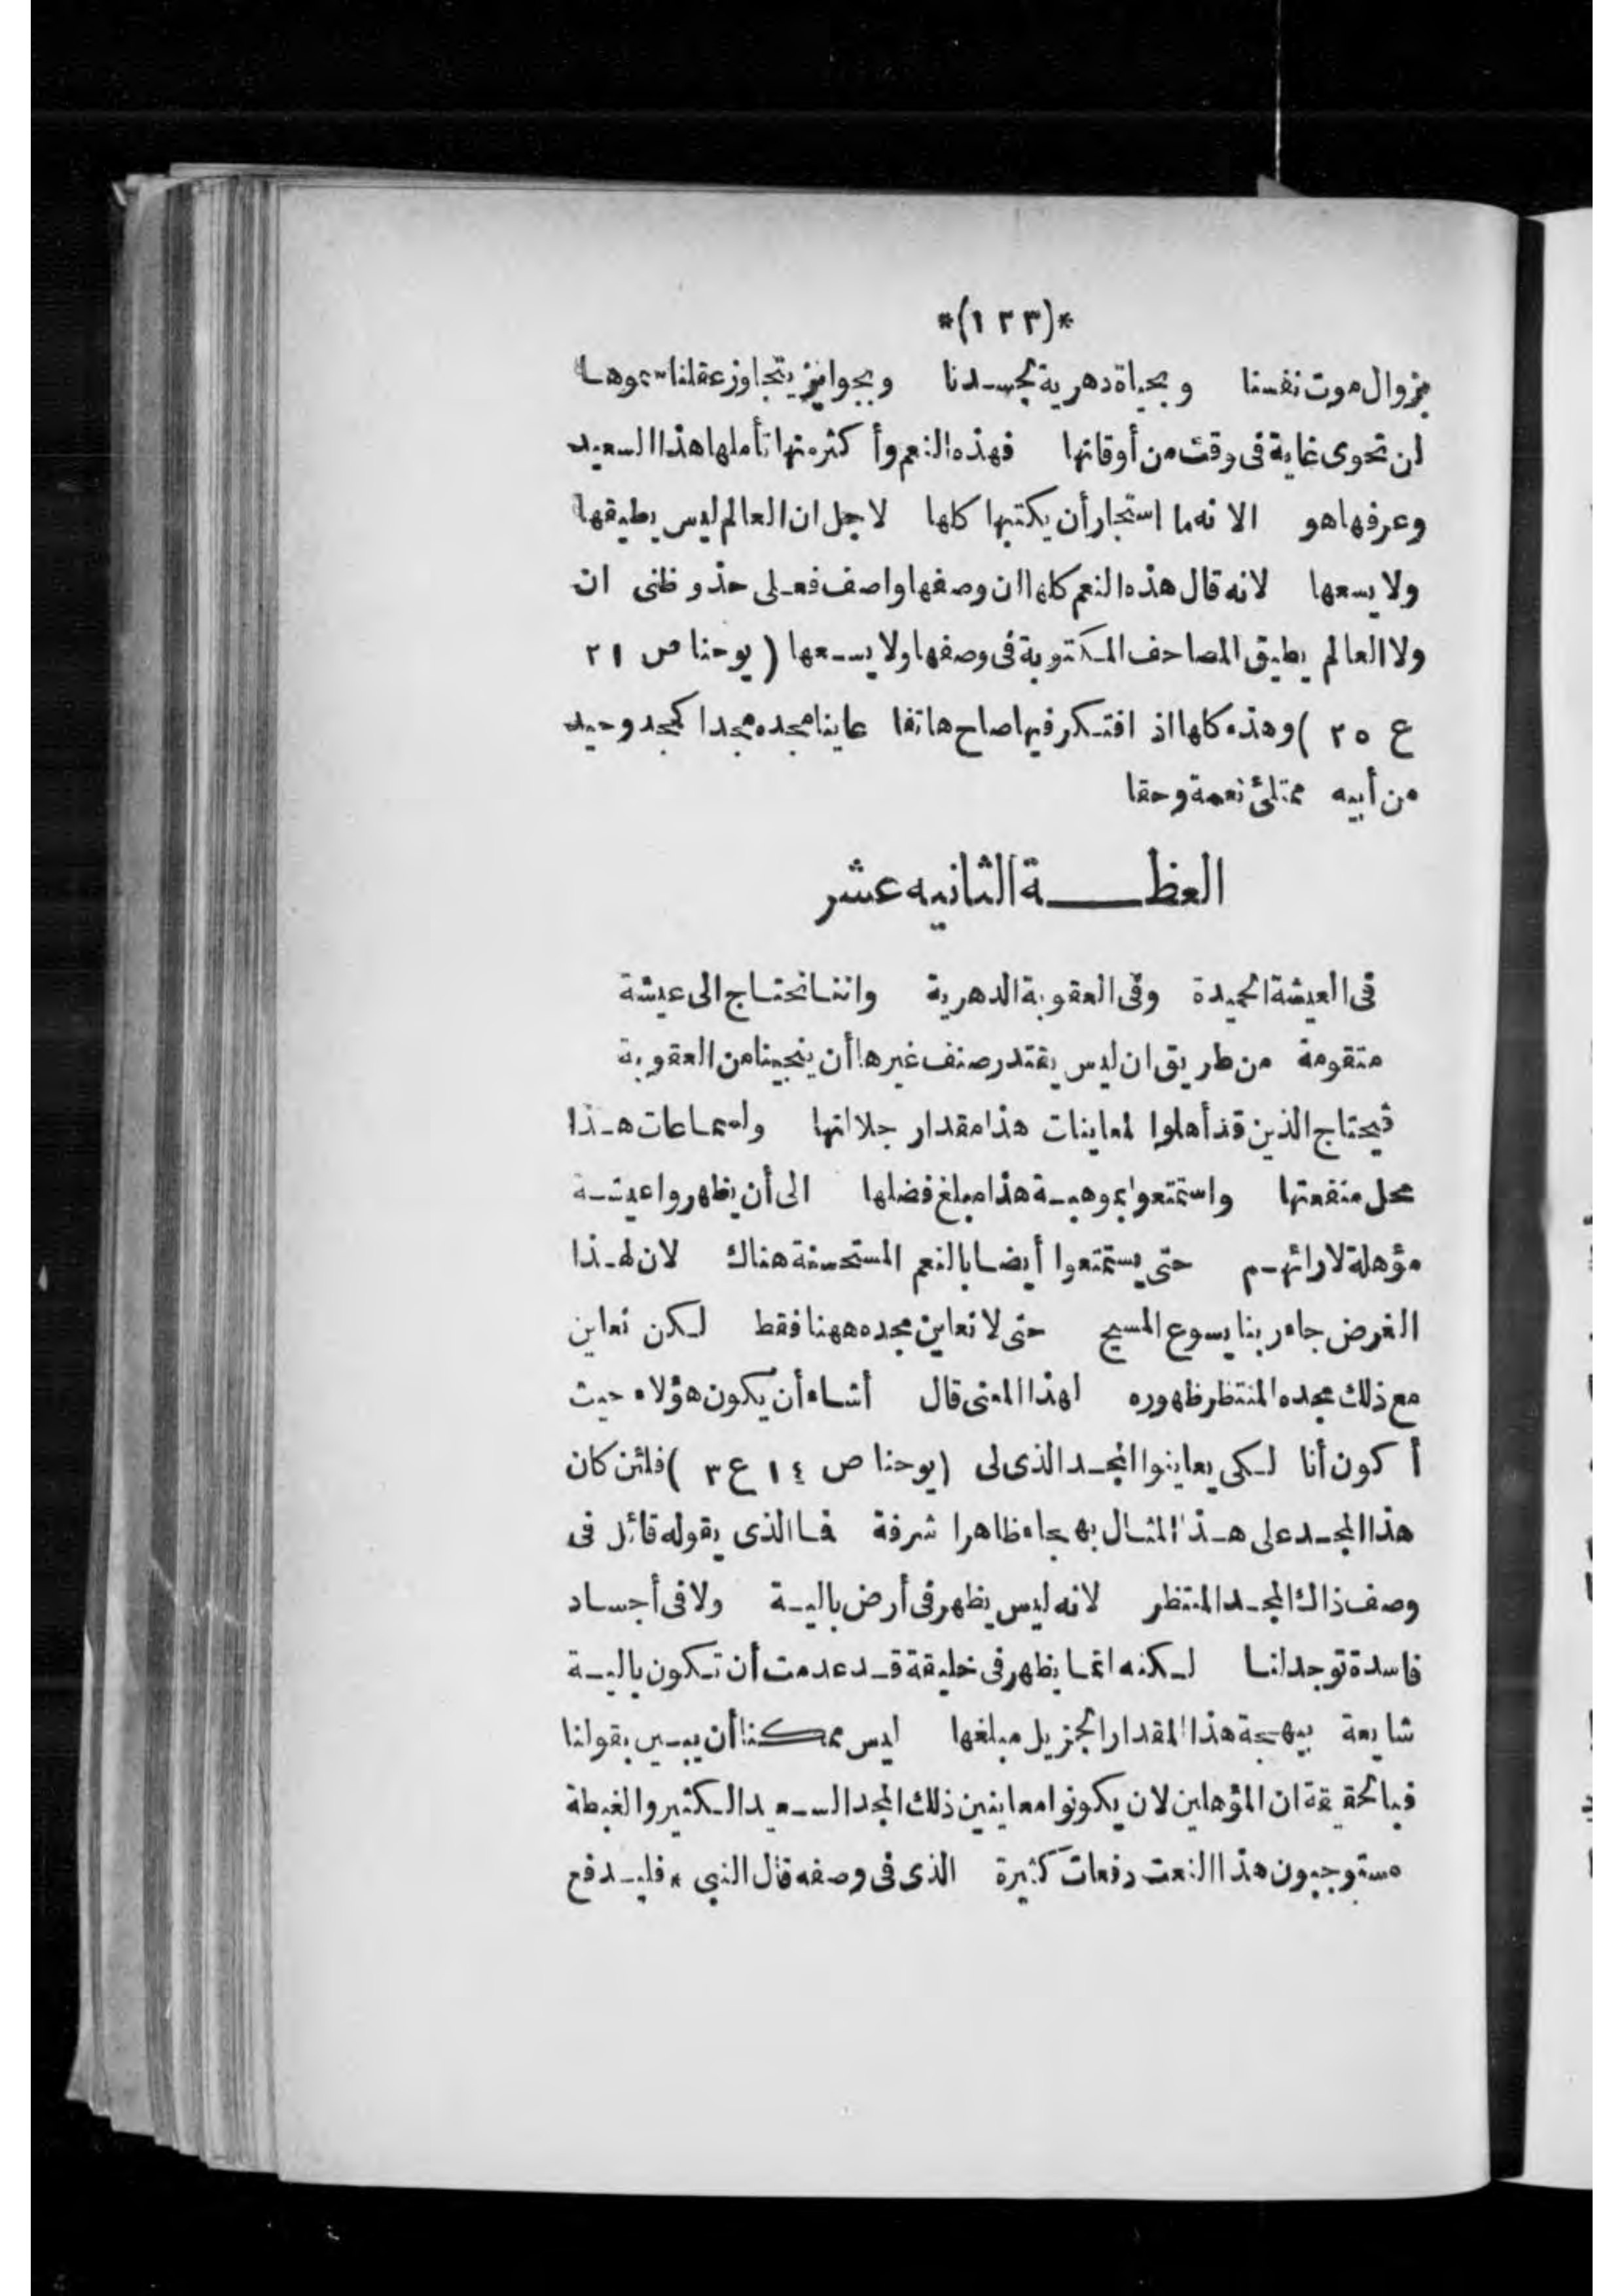 *(١٢٣)*
بزوال موت نفسنا وبحياة دهرية لجسدنا وبجوايز يتجاوز عقلنا سموها
ان تحوى غاية فى وقت من أوقاتها فهذه النعم وأكثر منها تأملها هذا السعيد
وعرفها هو الا نه ما استجار أن يكتبها كلها لاجل ان العالم ليس يطيقها
ولا يسعها لانه قال هذه النعم كلها ان وصفها واصف فعلى حذو ظنى ان
ولا العالم يطيق المصاحف المكتوبة فى وصفها ولا يسعها (يوحنا ص ٢١
ع ٢٥) وهذه كلها اذ افتكر فيها صاح هاتفا عاينا مجده مجدا كمجد وحيد
من أبيه ممتلئ نعمة وحقا
العظة الثانيه عشر
فى العيشة الحميدة وفى العقوبة الدهرية واننا نحتاج الى عيشة
متقومة من طريق ان ليس يقتدر صنف غيرها أن ينجينا من العقوبة
فيحتاج الذين قد أهلوا لمعاينات هذا مقدار جلالتها ولسماعات هذا
محل منفعتها واستمتعوا بموهبة هذا مبلغ فضلها الى أن يظهروا عيشة
مؤهلة لارائهم حتى يستمتعوا أيضا بالنعم المستحسنة هناك لان لهذا
الغرض جاء ربنا يسوع المسيح حتى لا نعاين مجده ههنا فقط لكن نعاين
مع ذلك مجده المنتظر ظهوره لهذا المعنى قال أشاء أن يكون هؤلاء حيث
أكون أنا لكى يعاينوا المجد الذى لى (يوحنا ص ١٤ ع ٣) فلئن كان
هذا المجد على هذا المثال بهجا ظاهرا شرفة فما الذى يقوله قائل فى
وصف ذاك المجد المنتظر لانه ليس يظهر فى أرض بالية ولا فى أجساد
فاسدة توجد لنا لكنه انما يظهر فى خليقة قد عدمت أن تكون بالية
شايعة ببهجة هذا المقدار الجزيل مبلغها ليس ممكنا أن يبين بقولنا
فبالحقيقة ان المؤهلين لان يكونوا معاينين ذلك المجد السعيد الكثير والغبطة
مستوجبون هذا النعت دفعات كثيرة الذى فى وصفه قال النبى * فليدفع